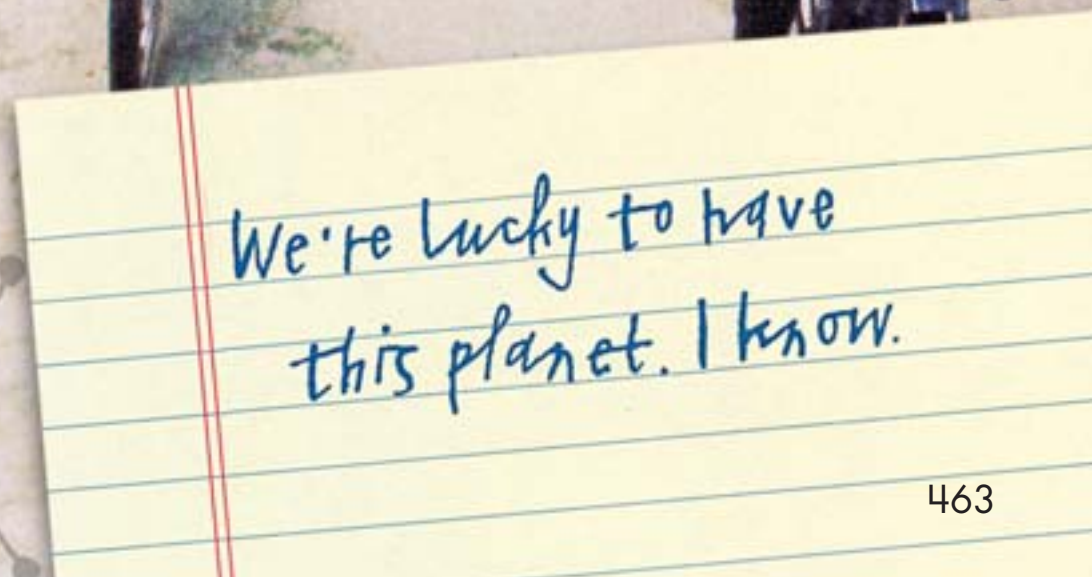 We're lucky to have
this planet. I know.
463